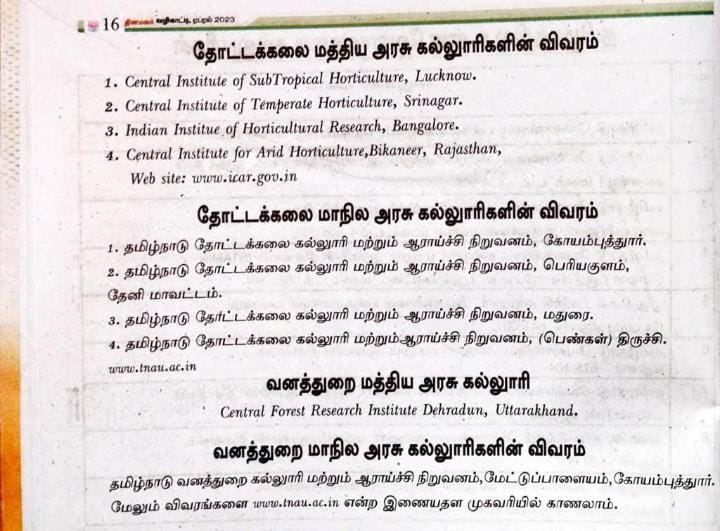 16 தினமலர் வழிகாட்டி, ஏப்ரல் 2023
தோட்டக்கலை மத்திய அரசு கல்லூரிகளின் விவரம்
1. Central Institute of SubTropical Horticulture, Lucknow.
2. Central Institute of Temperate Horticulture, Srinagar.
3. Indian Institue of Horticultural Research, Bangalore.
4. Central Institute for Arid Horticulture,Bikaneer, Rajasthan,
Web site: www.icar.gov.in
தோட்டக்கலை மாநில அரசு கல்லூரிகளின் விவரம்
1. தமிழ்நாடு தோட்டக்கலை கல்லூரி மற்றும் ஆராய்ச்சி நிறுவனம், கோயம்புத்தூர்.
2. தமிழ்நாடு தோட்டக்கலை கல்லூரி மற்றும் ஆராய்ச்சி நிறுவனம், பெரியகுளம்,
தேனி மாவட்டம்.
3. தமிழ்நாடு தோட்டக்கலை கல்லூரி மற்றும் ஆராய்ச்சி நிறுவனம், மதுரை.
4. தமிழ்நாடு தோட்டக்கலை கல்லூரி மற்றும்ஆராய்ச்சி நிறுவனம், (பெண்கள்) திருச்சி.
www.tnau.ac.in
வனத்துறை மத்திய அரசு கல்லூரி
Central Forest Research Institute Dehradun, Uttarakhand.
வனத்துறை மாநில அரசு கல்லூரிகளின் விவரம்
தமிழ்நாடு வனத்துறை கல்லூரி மற்றும் ஆராய்ச்சி நிறுவனம்,மேட்டுப்பாளையம்,கோயம்புத்தூர்.
மேலும் விவரங்களை www.tnau.ac.in என்ற இணையதள முகவரியில் காணலாம்.